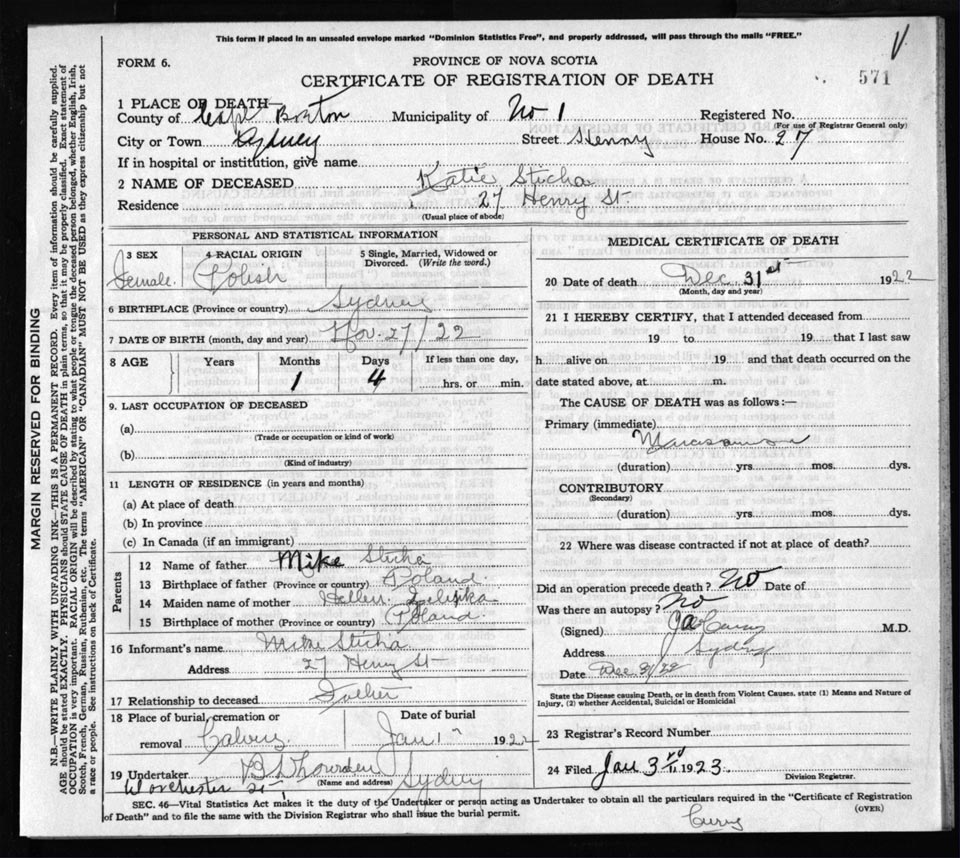 This form if placed in an unsealed envelope marked "Dominion Statistics Free", and properly addressed, will pass through the mails "FREE."
FORM 6.
PROVINCE OF NOVA SCOTIA
CERTIFICATE OF REGISTRATION OF DEATH
571
1 PLACE OF DEATH—
County of Cape Breton Municipality of No 1 Registered No.
(For use of Registrar General only)
City or Town Sydney Street Henry House No. 27
If in hospital or institution, give name
2 NAME OF DECEASED Katie Sticha
Residence 27 Henry St.
(Usual place of abode)
PERSONAL AND STATISTICAL INFORMATION
3 SEX 4 RACIAL ORIGIN 5 Single, Married, Widowed or Divorced. (Write the word.)
Female. Polish
6 BIRTHPLACE (Province or country) Sydney
7 DATE OF BIRTH (month, day and year) Nov. 27/22
8 AGE Years Months Days If less than one day,
1 4 hrs. or min.
9. LAST OCCUPATION OF DECEASED
(a)
(Trade or occupation or kind of work)
(b)
(Kind of industry)
11 LENGTH OF RESIDENCE (in years and months)
(a) At place of death
(b) In province
(c) In Canada (if an immigrant)
Parents
12 Name of father Mike Sticha
13 Birthplace of father (Province or country) Poland.
14 Maiden name of mother Hellen
15 Birthplace of mother (Province or country) Poland.
16 Informant's name Mike Sticha
Address 27 Henry St
17 Relationship to deceased Father
18 Place of burial, cremation or removal Calvery.
Date of burial Jan 1 192
19 Undertaker Sydney
(Name and address)
Worchester St
MEDICAL CERTIFICATE OF DEATH
20 Date of death Dec 31st 1922
(Month, day and year)
21 I HEREBY CERTIFY, that I attended deceased from
19 to 19 that I last saw
h alive on 19 and that death occurred on the
date stated above, at m.
The CAUSE OF DEATH was as follows:—
Primary (immediate)
(duration) yrs. mos. dys.
CONTRIBUTORY
(Secondary)
(duration) yrs. mos. dys.
22 Where was disease contracted if not at place of death?
Did an operation precede death? No Date of
Was there an autopsy? No
(Signed) M.D.
Address Sydney
Date Dec 31/22
State the Disease causing Death, or in death from Violent Causes, state (1) Means and Nature of
Injury, (2) whether Accidental, Suicidal or Homicidal
23 Registrar's Record Number
24 Filed Jan 3rd 1923.
Division Registrar.
SEC. 46—Vital Statistics Act makes it the duty of the Undertaker or person acting as Undertaker to obtain all the particulars required in the "Certificate of Registration
of Death" and to file the same with the Division Registrar who shall issue the burial permit.
(OVER)
MARGIN RESERVED FOR BINDING
N.B.—WRITE PLAINLY WITH UNFADING INK—THIS IS A PERMANENT RECORD. Every item of information should be carefully supplied.
AGE should be stated EXACTLY. PHYSICIANS should STATE CAUSE OF DEATH in plain terms, so that it may be properly classified. Exact statement of
OCCUPATION is very important. RACIAL ORIGIN will be described by stating to what people or tongue the deceased person belonged, whether English, Irish,
Scotch, French, German, Russian, Ruthenian, etc. The terms "AMERICAN" OR "CANADIAN" MUST NOT BE USED as they express citizenship but not
a race or people. See instructions on back of Certificate.